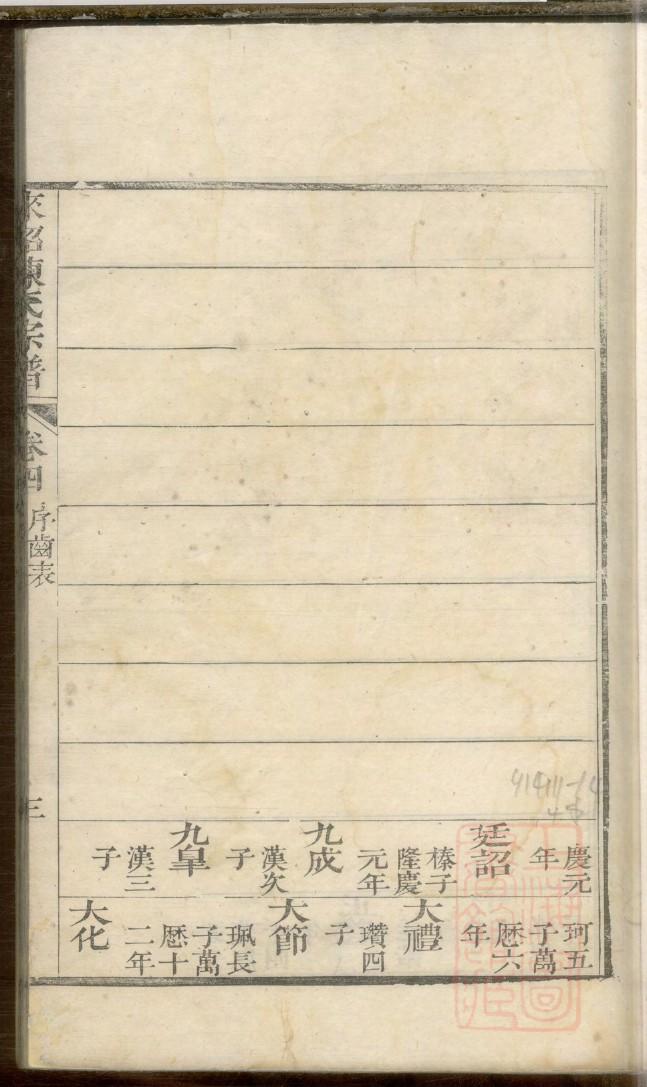 慶元
年
廷詔
榛子
隆慶
元年
九成
漢次
子
九臯
漢三
子
珂五
子萬
歷六
年
大禮
瓚四
子
大節
珮長
子萬
歷十
二年
大化
陳氏宗譜
卷四
序齒表
三